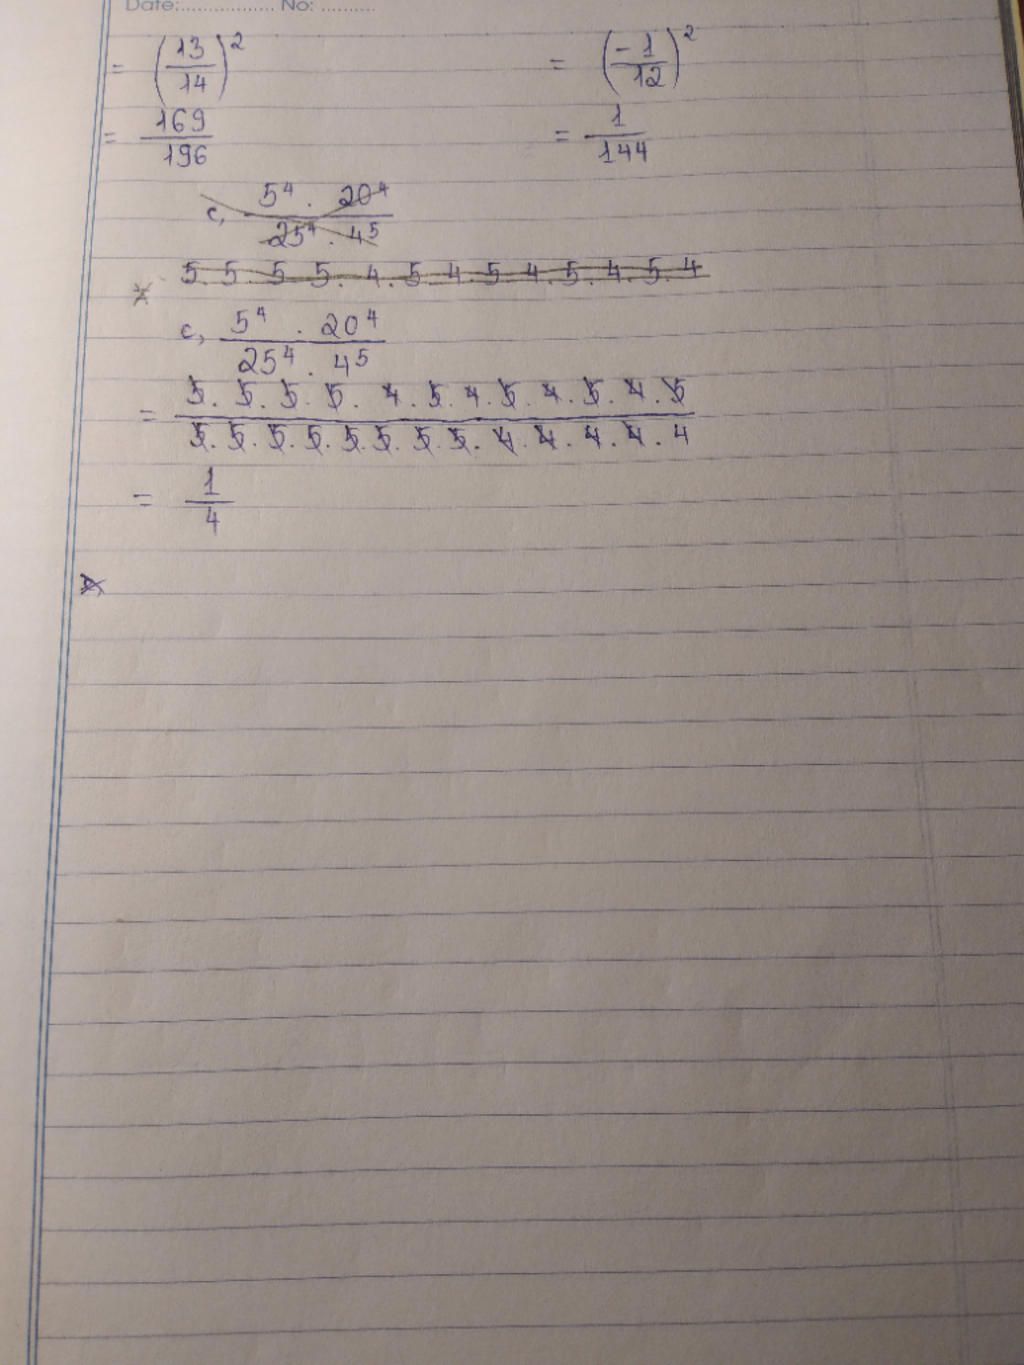 Date:.................. No: ..........
= (13/14)² = (-1/12)²
= 169/196 = 1/144
c, 5⁴ . 20⁴ / 25⁴ . 4⁵
5. 5. 5. 5. 4. 5. 4. 5. 4. 5. 4. 5. 4
c, 5⁴ . 20⁴ / 25⁴ . 4⁵
= 5. 5. 5. 5. 4. 5. 4. 5. 4. 5. 4. 5 / 5. 5. 5. 5. 5. 5. 5. 5. 4. 4. 4. 4. 4
= 1/4